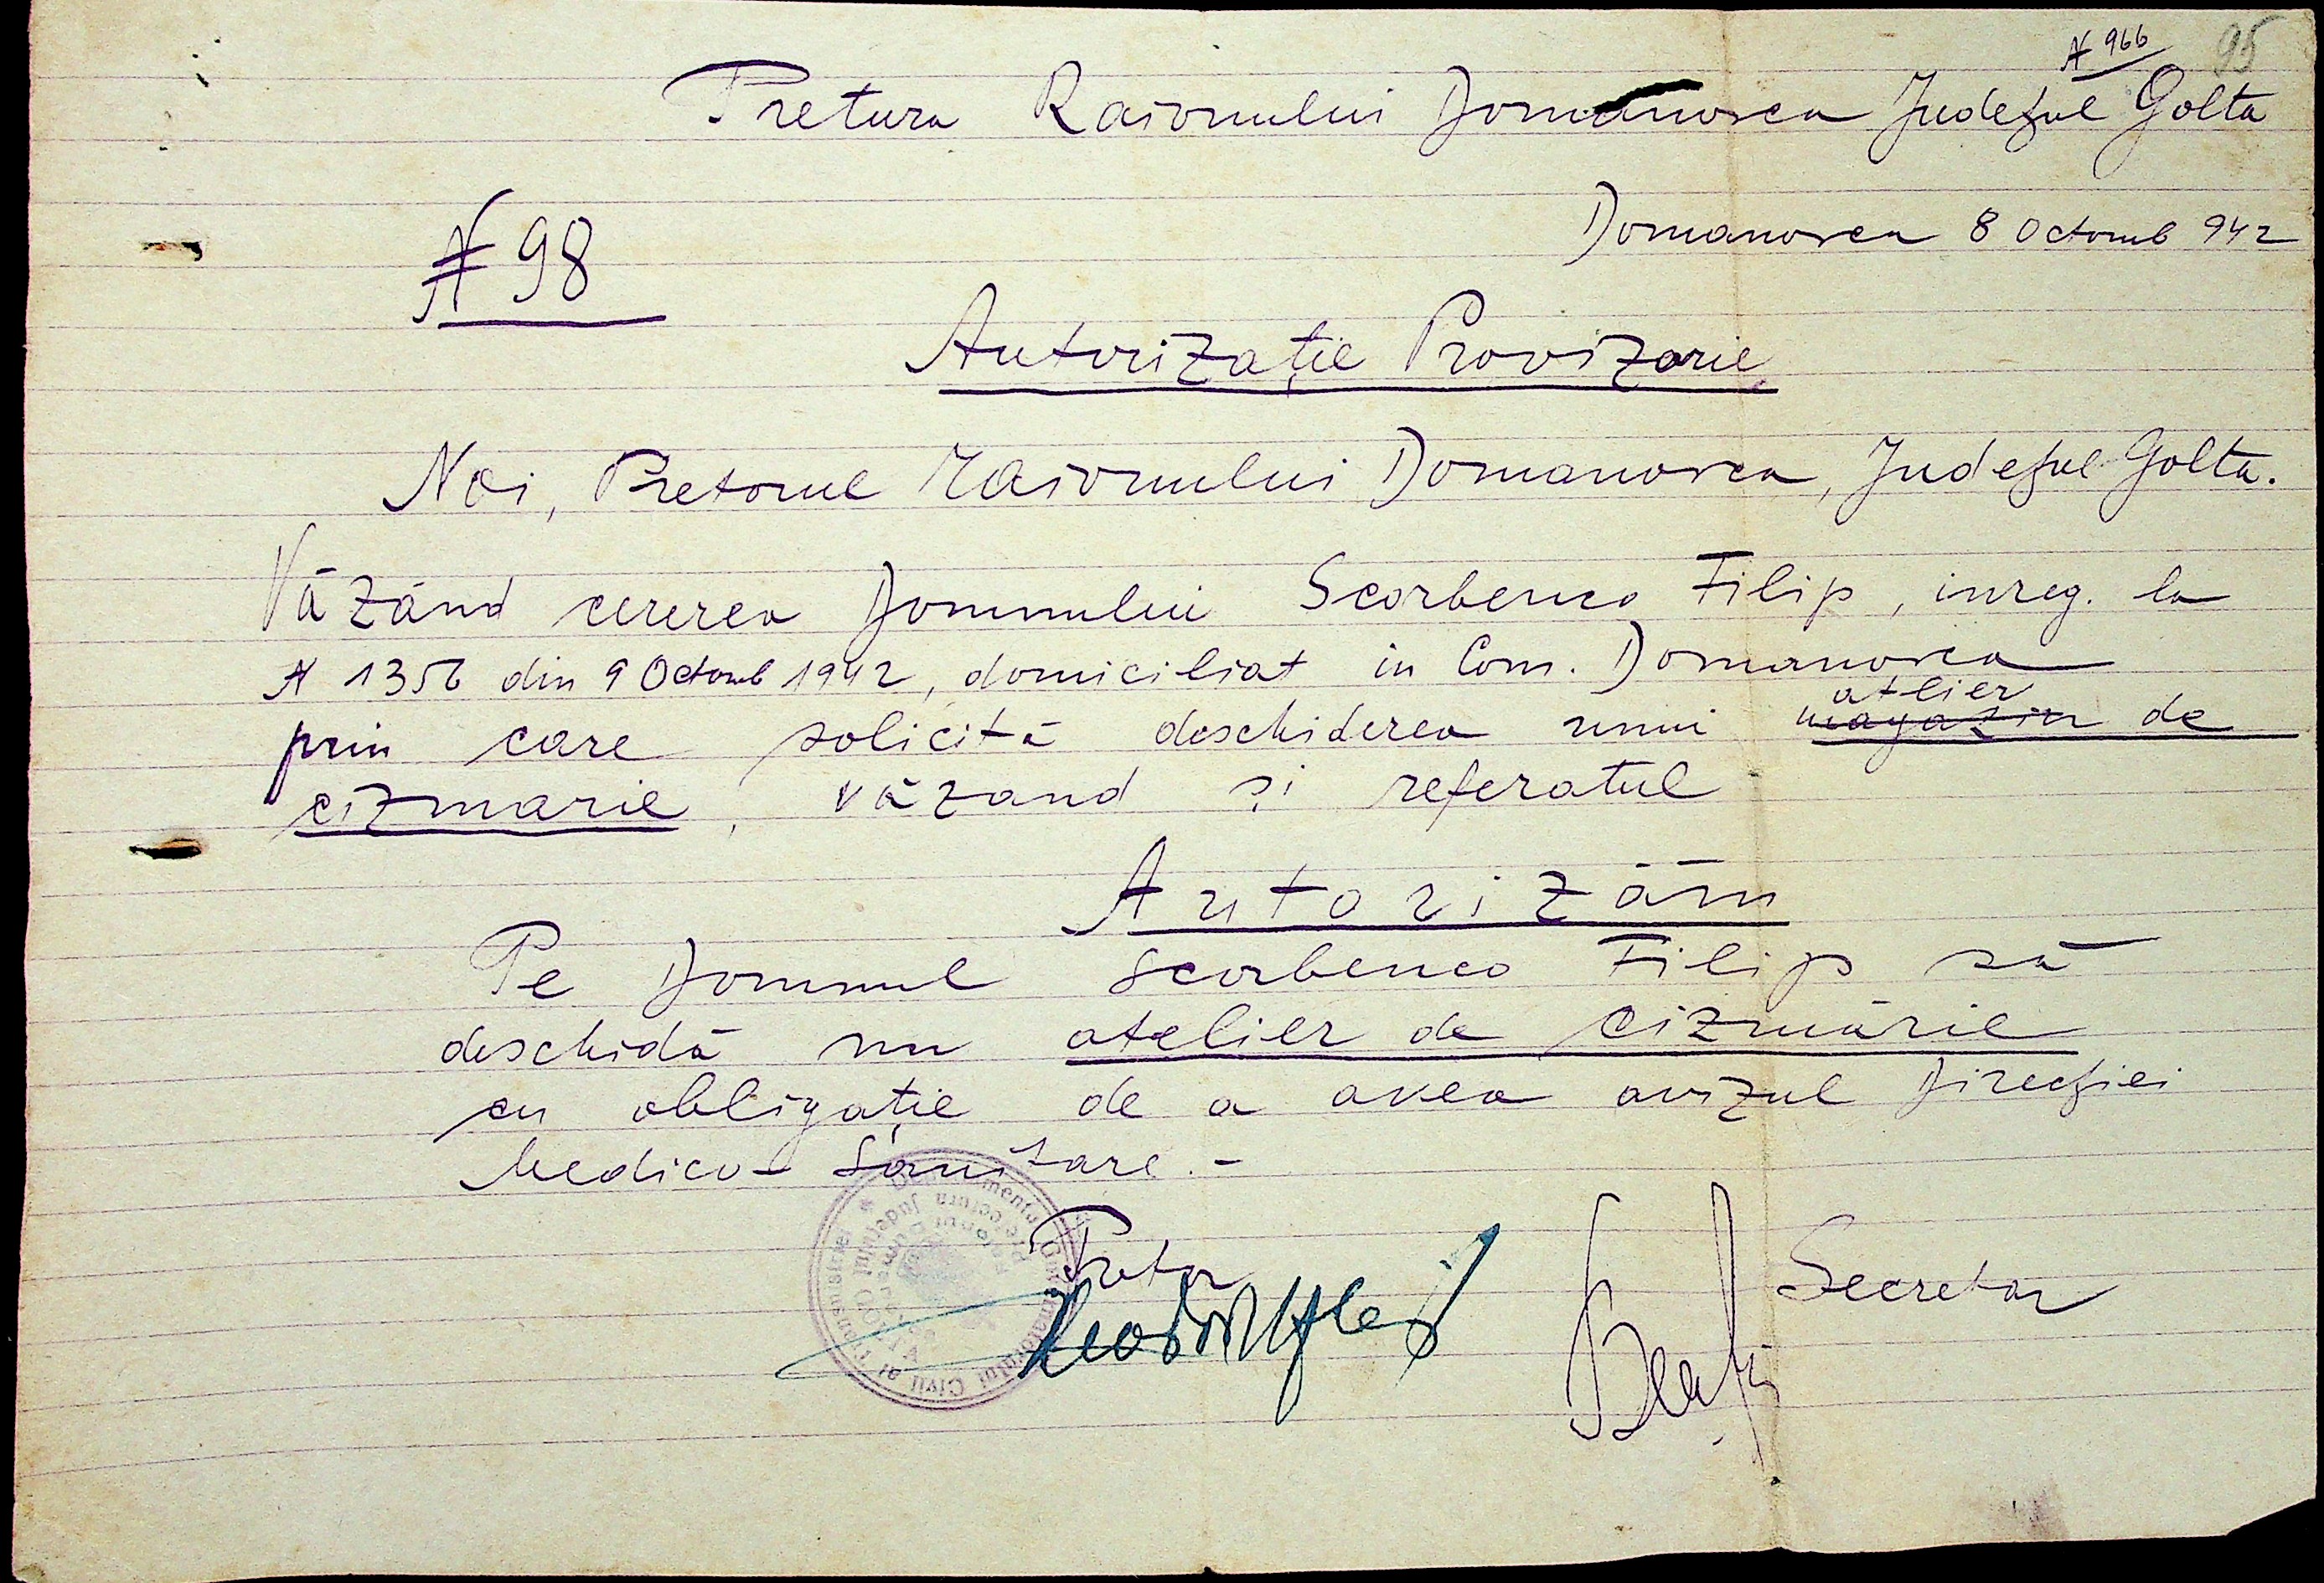 N 966 95
Pretura Raionului Domanovca Județul Golta
N 98
Domanovca 8 Octomb 942
Autorizație Provizorie
Noi, Pretorul Raionului Domanovca, Județul Golta.
Văzând cererea Domnului Scorbenco Filip, inreg. la
N 1356 din 9 Octomb 1942, domiciliat in Com. Domanovca
atlier
prin care solicită deschiderea unui magazin de
cizmarie, văzand și referatul
Autorizăm
Pe Domnul Scorbenco Filip să
deschidă un atelier de cizmărie
cu obligație de a avea avizul Direcției
Medico-Sanitare.-
Pretor
Secretar
Guvernatorului Civil al Transnistriei